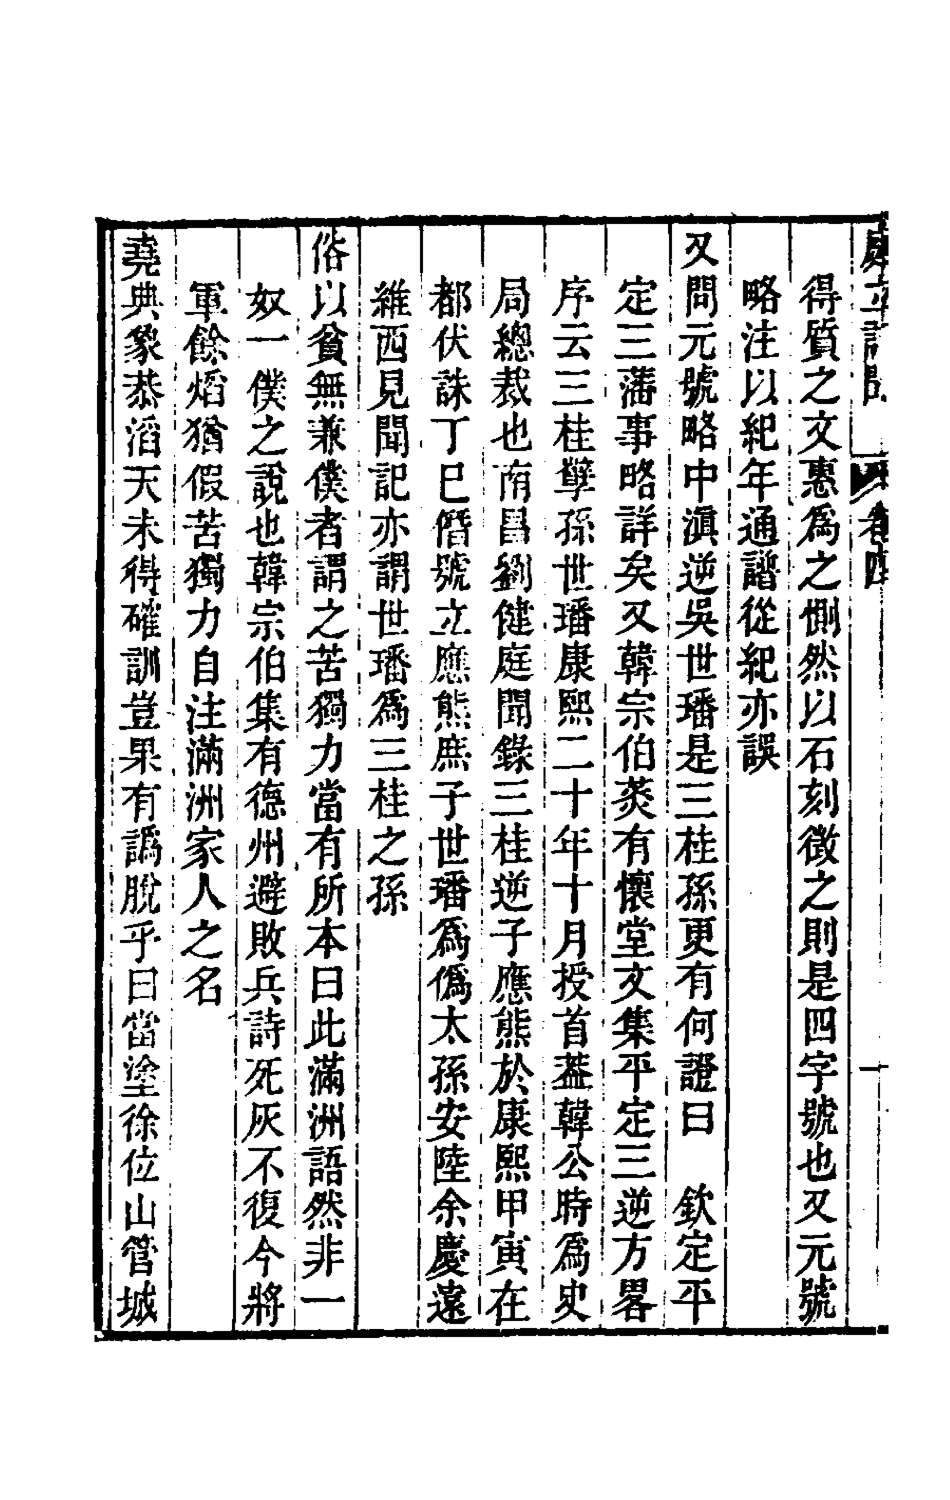 得質之文惠為之惻然以石刻徵之則是四字號也又元號
略注以紀年通譜從紀亦誤
又問元號略中滇逆吳世璠是三桂孫更有何證曰　欽定平
定三藩事略詳矣又韓宗伯菼有懷堂文集平定三逆方畧
序云三桂孽孫世璠康熙二十年十月授首葢韓公時為史
局總裁也南昌劉健庭聞錄三桂逆子應熊於康熙甲寅在
都伏誅丁巳僭號立應熊庶子世璠為偽太孫安陸余慶遠
維西見聞記亦謂世璠為三桂之孫
俗以貧無兼僕者謂之苦獨力當有所本曰此滿洲語然非一
奴一僕之說也韓宗伯集有德州避敗兵詩死灰不復今將
軍餘焰猶假苦獨力自注滿洲家人之名
堯典象恭滔天未得確訓豈果有譌脫乎曰當塗徐位山管城